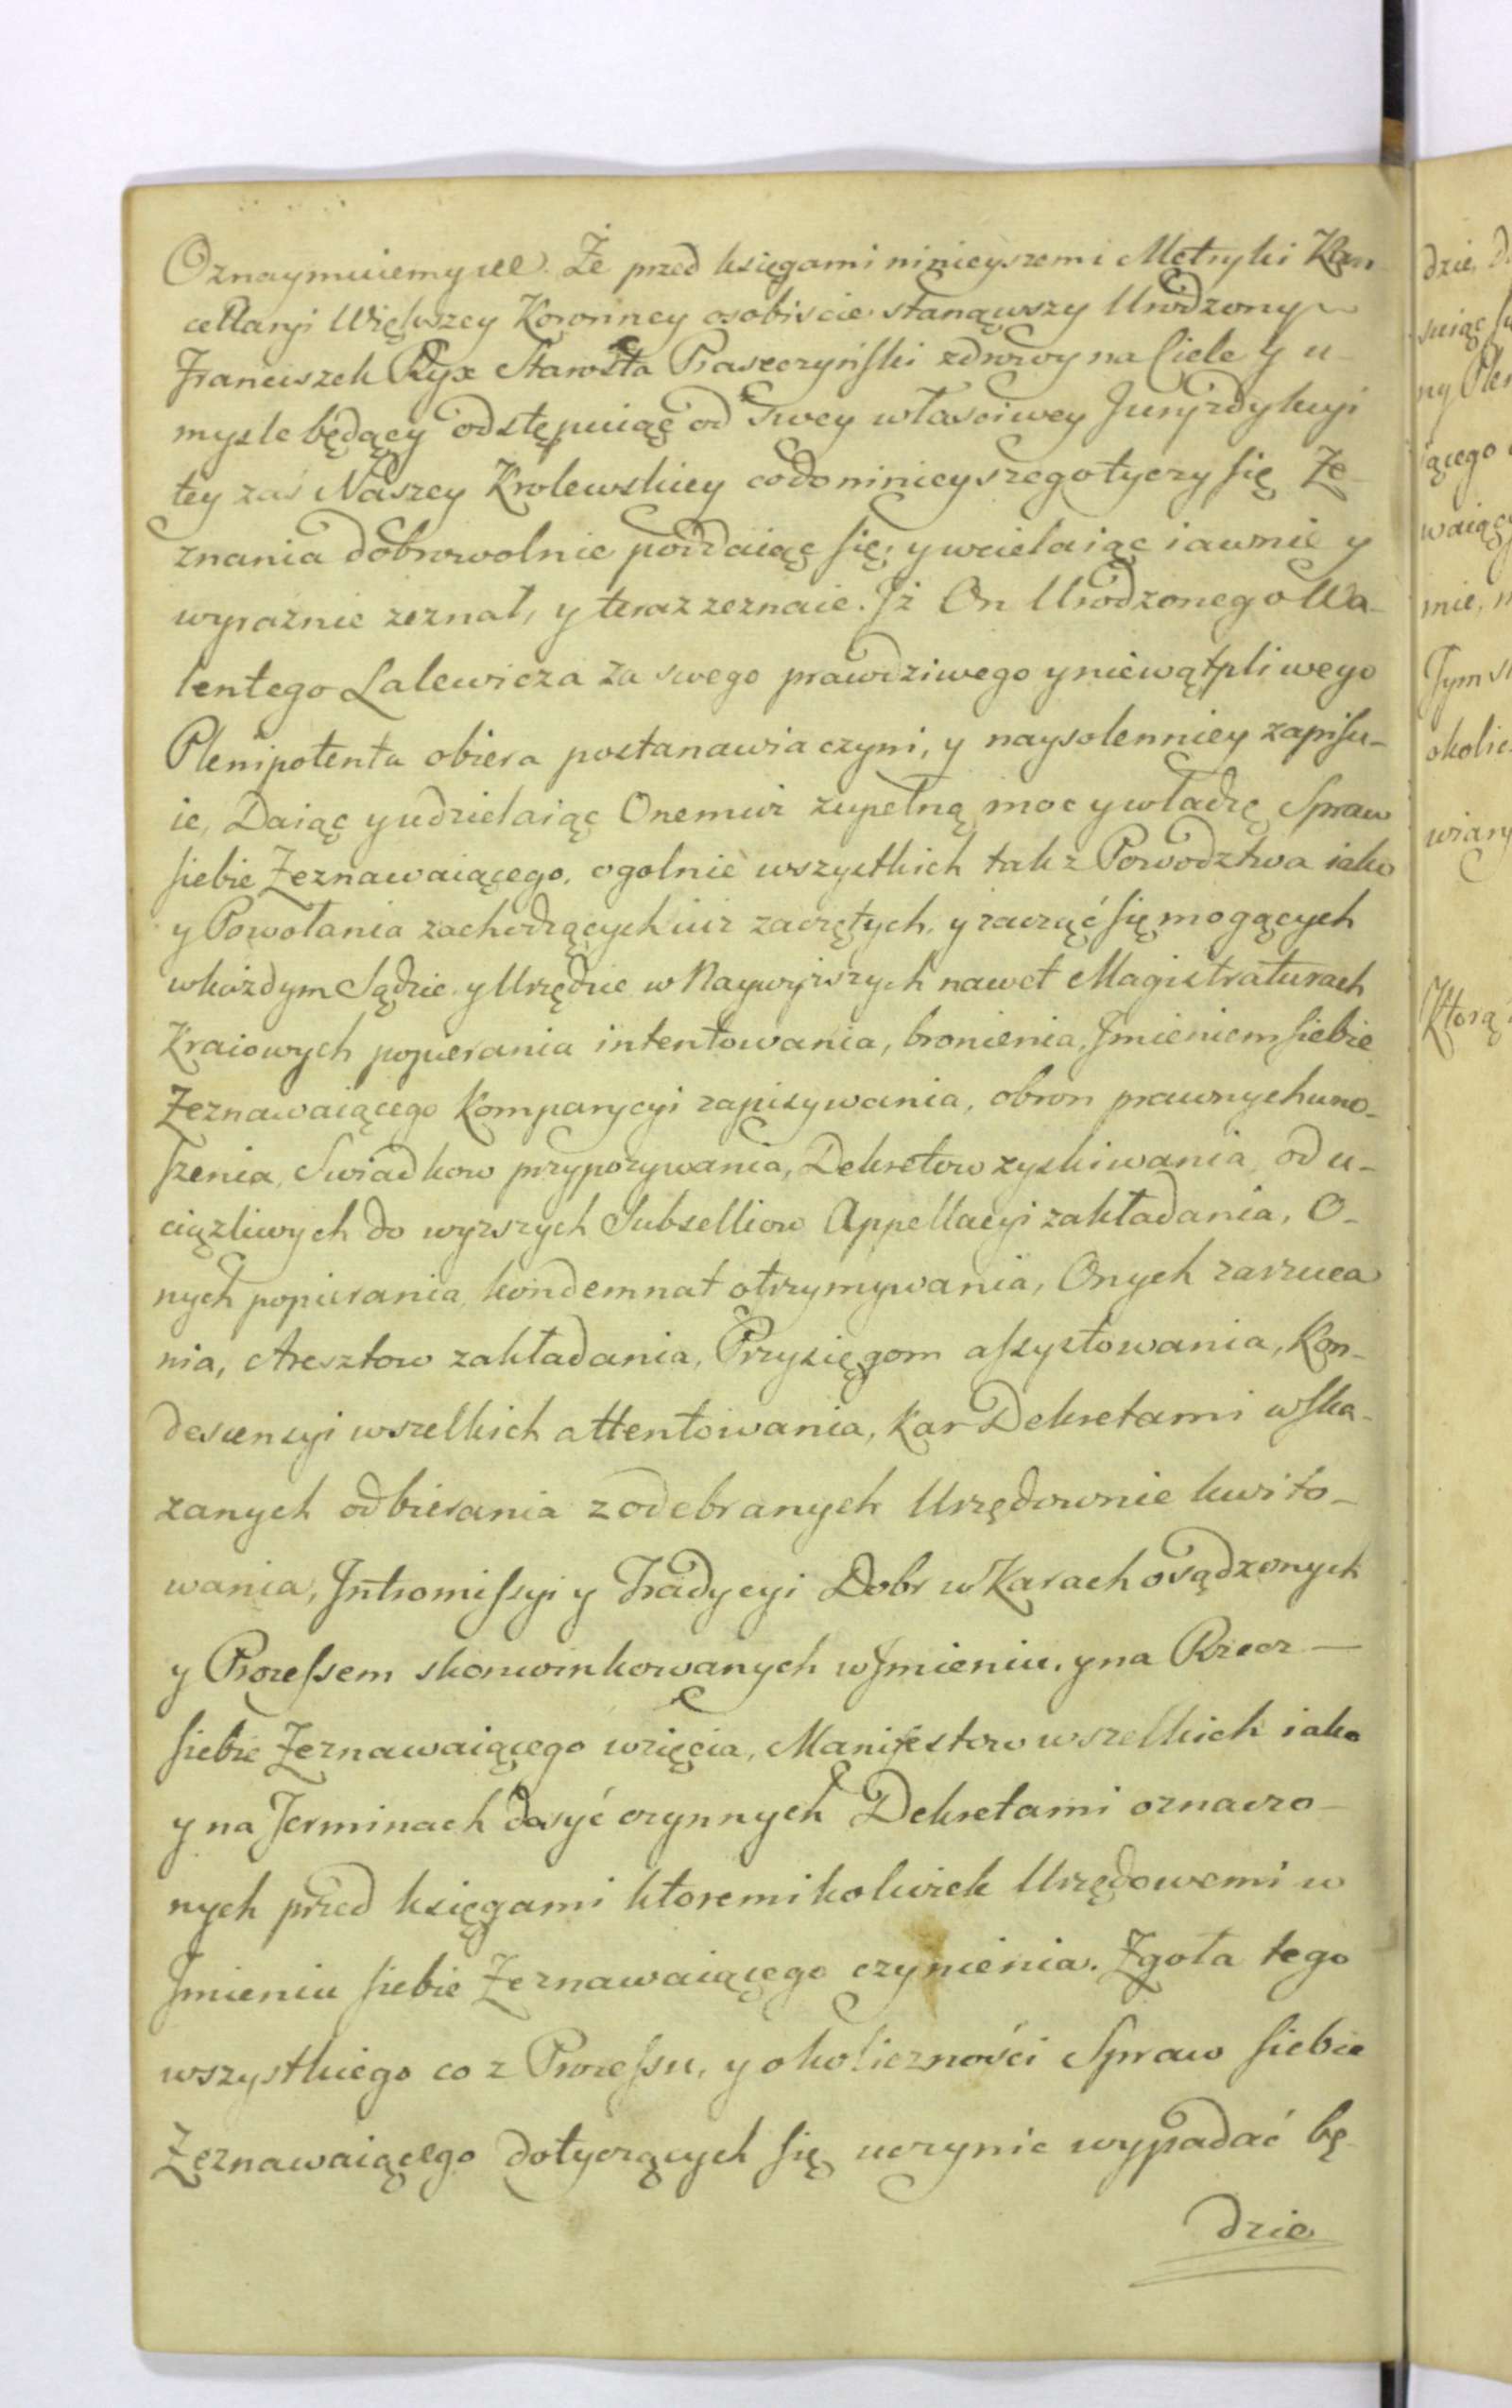 Oznaymuiemy &c. Że przed księgami ninieyszemi Metryki Kan
cellaryi Większey Koronney osobiscie stanąwszy Urodzony
Franciszek Ryx Starosta Piaseczyński zdrowy na Ciele y u
mysle będący odstępuiąc od swey własciwey Juryzdykcyi
tey zaś Naszey Krolewskiey co do ninieyszego tyczy się Ze-
znania dobrowolnie poddaiąc się, y wcielaiąc iawnie y
wyraznie zeznał, y teraz zeznaie. Iż On Urodzonego Wa-
lentego Lalewicza za swego prawdziwego y niewątpliwego
Plenipotenta obiera postanawia czyni, y naysolenniey zapisu-
ie, Daiąc y udzielaiąc Onemuż zupełną moc y władzę Spraw
siebie Zeznawaiącego, ogolnie wszystkich tak z Powodztwa iako
y Powołania zachodzących iuż zaczętych, y zacząć się mogących
w każdym Sądzie y Urzędzie w Naywyższych nawet Magistraturach
Kraiowych popierania intentowania, bronienia, Imieniem siebie
Zeznawaiącego Komparycyi zapisywania, obron prawnych wno-
szenia, Swiadkow przypozywania, Dekretow zyskiwania, od u-
ciązliwych do wyższych Subselliow Appellacyi zakładania, O-
nych popierania, kondemnat otrzymywania, Onych zarzuca
nia, Aresztow zakładania, Przysięgom assystowania, Kon-
descensyi wszelkich attentowania, Kar Dekretami wska-
zanych odbierania z odebranych Urzędownie kwito-
wania, Intromissyi y Tradycyi Dobr w Karach osądzonych
y Processem skonwinkowanych w Imieniu, y na Rzecz —
siebie Zeznawaiącego wzięcia, Manifestow wszelkich iako
y na Terminach dosyć czynnych Dekretami oznaczo-
nych przed księgami ktoremikolwiek Urzędowemi w
Imieniu siebie Zeznawaiącego czynienia. Zgoła tego
wszystkiego co z Processu, y okoliczności Spraw siebie
Zeznawaiącego dotyczących się uczynic wypadać bę
dzie